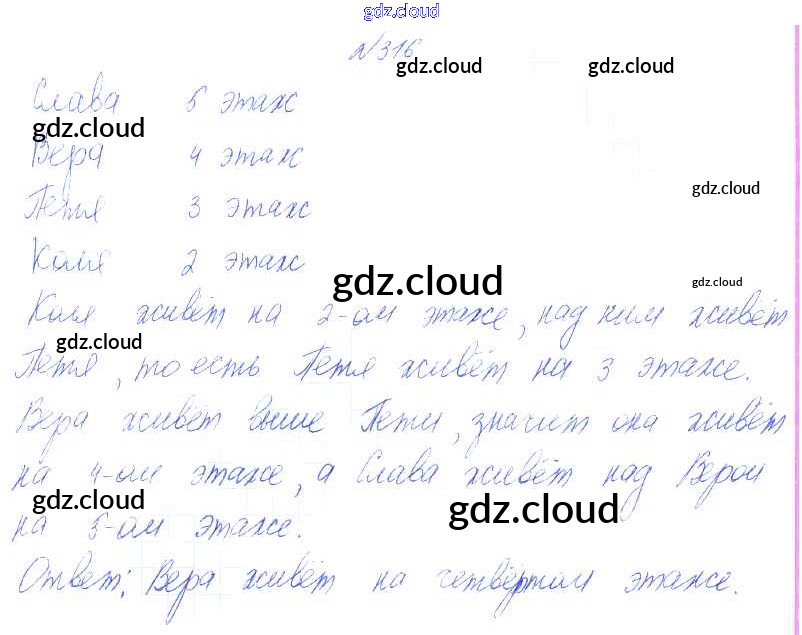 gdz.cloud
№316
gdz.cloud gdz.cloud
Слава 5 этаж
gdz.cloud
Вера 4 этаж
gdz.cloud
Петя 3 этаж
Коля 2 этаж
gdz.cloud gdz.cloud
Коля живёт на 2-ом этаже, над ним живёт
gdz.cloud
Петя, то есть Петя живёт на 3 этаже.
Вера живёт выше Пети, значит она живёт
на 4-ом этаже, а Слава живёт над Верой
gdz.cloud gdz.cloud
на 5-ом этаже.
Ответ: Вера живёт на четвёртом этаже.